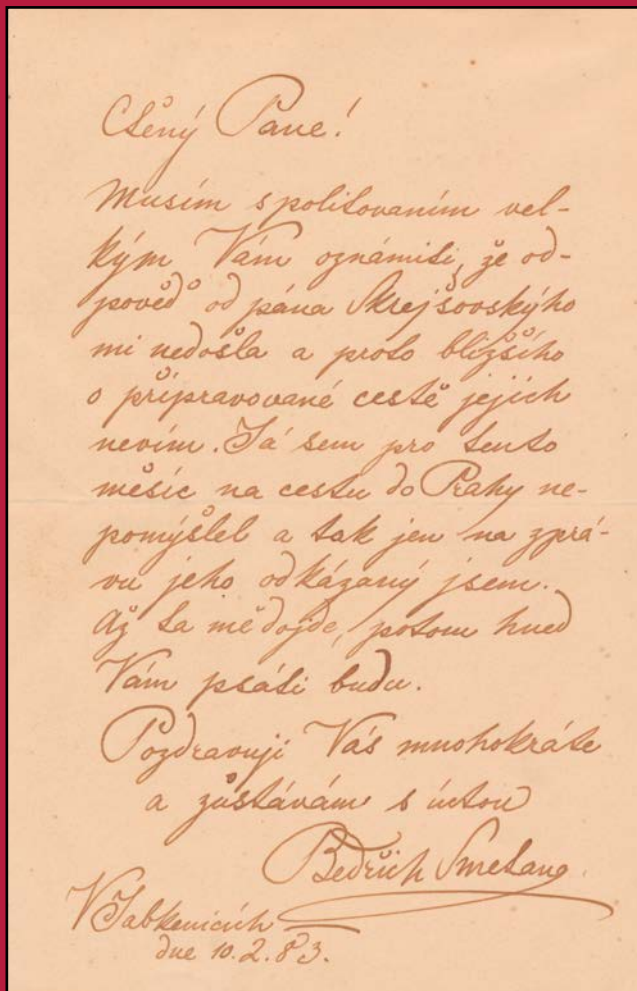 Ctěný Pane!
Musím s politováním vel-
kým Vám oznámiti, že od-
pověď od pána Skrejšovského
mi nedošla a proto bližšího
o připravované cestě jejich
nevím. Já sem pro tento
měsíc na cestu do Prahy ne-
pomýšlel a tak jen na zprá-
vu jeho odkázaný jsem.
Až ta mě dojde, potom hned
Vám psáti budu.
Pozdravuji Vás mnohokráte
a zůstávám s úctou
Bedřich Smetana
V Jabkenicích
dne 10.2.83.